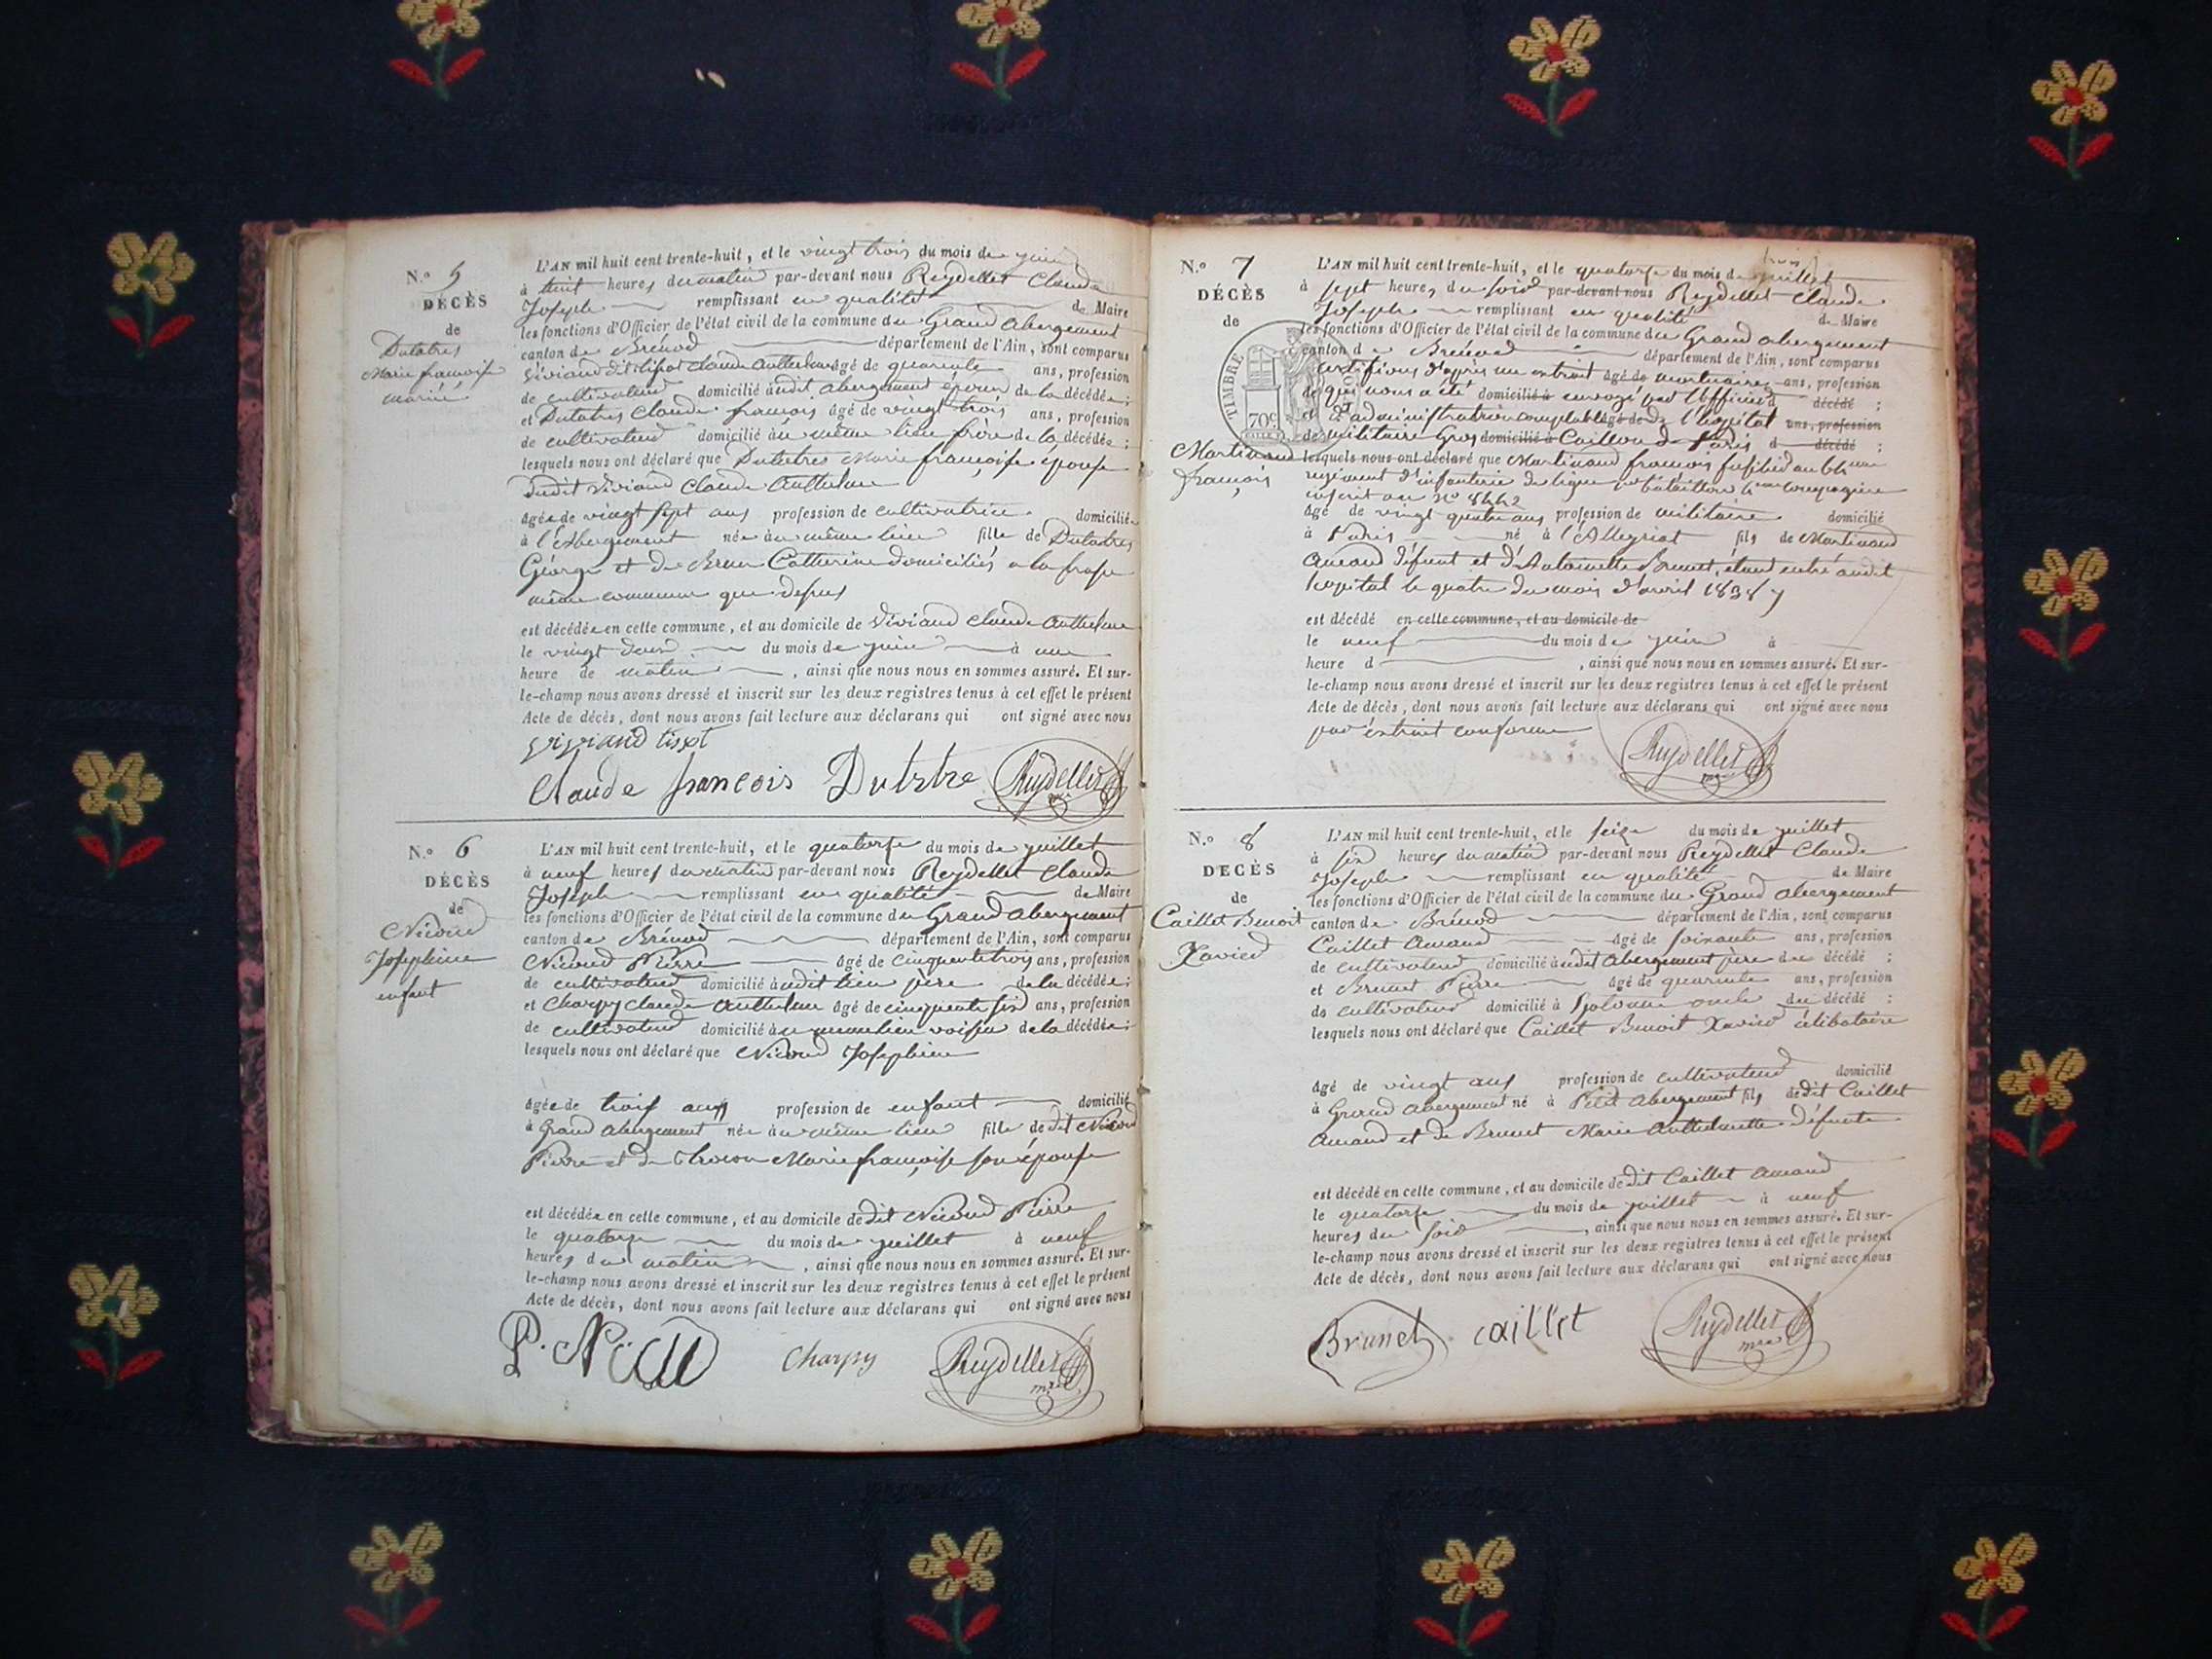 N.o 5
DÉCÈS
de
Dutatres
Marie françoise
mariée
L'AN mil huit cent trente-huit, et le vingt trois du mois de juin
à huit heures du matin par-devant nous Reydellet Claude
Joseph remplissant en qualité de Maire
les fonctions d'Officier de l'état civil de la commune du Grand abergement
canton de Brénod département de l'Ain, sont comparus
Viviand dit tissot Claude Anthelme âgé de quarente ans, profession
de cultivateur domicilié àudit abergement époux de la décédée;
et Dutatres Claude françois âgé de vingt trois ans, profession
de cultivateur domicilié àu même lieu frère de la décédée;
lesquels nous ont déclaré que Dutatres Marie françoise épouse
dudit Viviand Claude Anthelme
âgée de vingt sept ans profession de cultivatrice domiciliée
à l'Abergement née àu même lieu fille de Dutatres
Géorge et de Brun Catherine domiciliés a la
même commune que dessus
est décédée en cette commune, et au domicile de Viviand Claude Anthelme
le vingt deux du mois de juin à une
heure de matin, ainsi que nous nous en sommes assuré. Et sur-
le-champ nous avons dressé et inscrit sur les deux registres tenus à cet effet le présent
Acte de décès, dont nous avons fait lecture aux déclarans qui ont signé avec nous
viviand tissot
Claude francois Dutrtre Reydellet
N.o 6
DÉCÈS
de
Nicoud
Josephine
enfant
L'AN mil huit cent trente-huit, et le quatorse du mois de juillet
à neuf heures du matin par-devant nous Reydellet Claude
Joseph remplissant en qualité de Maire
les fonctions d'Officier de l'état civil de la commune du Grand abergement
canton de Brénod département de l'Ain, sont comparus
Nicoud Pierre âgé de cinquente trois ans, profession
de cultivateur domicilié àudit lieu père de la décédée;
et Charpy Claude Anthelme âgé de cinquente six ans, profession
de cultivateur domicilié àu même lieu voisin de la décédée;
lesquels nous ont déclaré que Nicoud Josephine
âgée de trois ans profession de enfant domicilié
à Grand abergement née àu même lieu fille de dit Nicoud
Pierre et de Marie françoise son épouse
est décédée en cette commune, et au domicile de dit Nicoud Pierre
le quatorse du mois de juillet à neuf
heures du matin, ainsi que nous nous en sommes assuré. Et sur-
le-champ nous avons dressé et inscrit sur les deux registres tenus à cet effet le présent
Acte de décès, dont nous avons fait lecture aux déclarans qui ont signé avec nous
Charpy Reydellet
N.o 7
DÉCÈS
de
TIMBRE
70c
Martinand
françois
L'AN mil huit cent trente-huit, et le quatorse du mois de juillet
à sept heures du soir par-devant nous Reydellet Claude
Joseph remplissant en qualité de Maire
les fonctions d'Officier de l'état civil de la commune du Grand abergement
canton de Brénod département de l'Ain, sont comparus
certifions d'après un extrait âgé de mortuaire ans, profession
de qui nous a été domicilié à envoyé par l'officier d décédé;
et d'administration comptable âgé de de l'hopital ans, profession
de militaire Gros domicilié à Caillou de Paris d décédé;
lesquels nous ont déclaré que Martinand françois fusilier au
regiment d'infanterie de ligne bataillon compagnie
inscrit au No 8442
âgé de vingt quatre ans profession de militaire domicilié
à Paris né à l'Alleyriat fils de Martinand
Amand défunt et d'Antoinette Brunet, étant entré audit
hopital le quatre du mois d'avril 1838
est décédé en cette commune, et au domicile de
le neuf du mois de juin à
heure d, ainsi que nous nous en sommes assuré. Et sur-
le-champ nous avons dressé et inscrit sur les deux registres tenus à cet effet le présent
Acte de décès, dont nous avons fait lecture aux déclarans qui ont signé avec nous
par extrait conforme
Reydellet
N.o 8
DÉCÈS
de
Caillet Benoit
Xavier
L'AN mil huit cent trente-huit, et le seize du mois de juillet
à six heures du matin par-devant nous Reydellet Claude
Joseph remplissant en qualité de Maire
les fonctions d'Officier de l'état civil de la commune du Grand abergement
canton de Brénod département de l'Ain, sont comparus
Caillet Amand âgé de soixante ans, profession
de cultivateur domicilié àudit Abergement père du décédé;
et Brunet Pierre âgé de quarente ans, profession
de cultivateur domicilié à oncle du décédé;
lesquels nous ont déclaré que Caillet Benoit Xavier célibataire
âgé de vingt ans profession de cultivateur domicilié
à Grand abergement né à Petit Abergement fils de dit Caillet
Amand et de Brunet Marie Anthelmette défunte
est décédé en cette commune, et au domicile de dit Caillet Amand
le quatorse du mois de juillet à neuf
heures du soir, ainsi que nous nous en sommes assuré. Et sur-
le-champ nous avons dressé et inscrit sur les deux registres tenus à cet effet le présent
Acte de décès, dont nous avons fait lecture aux déclarans qui ont signé avec nous
Brunet caillet Reydellet